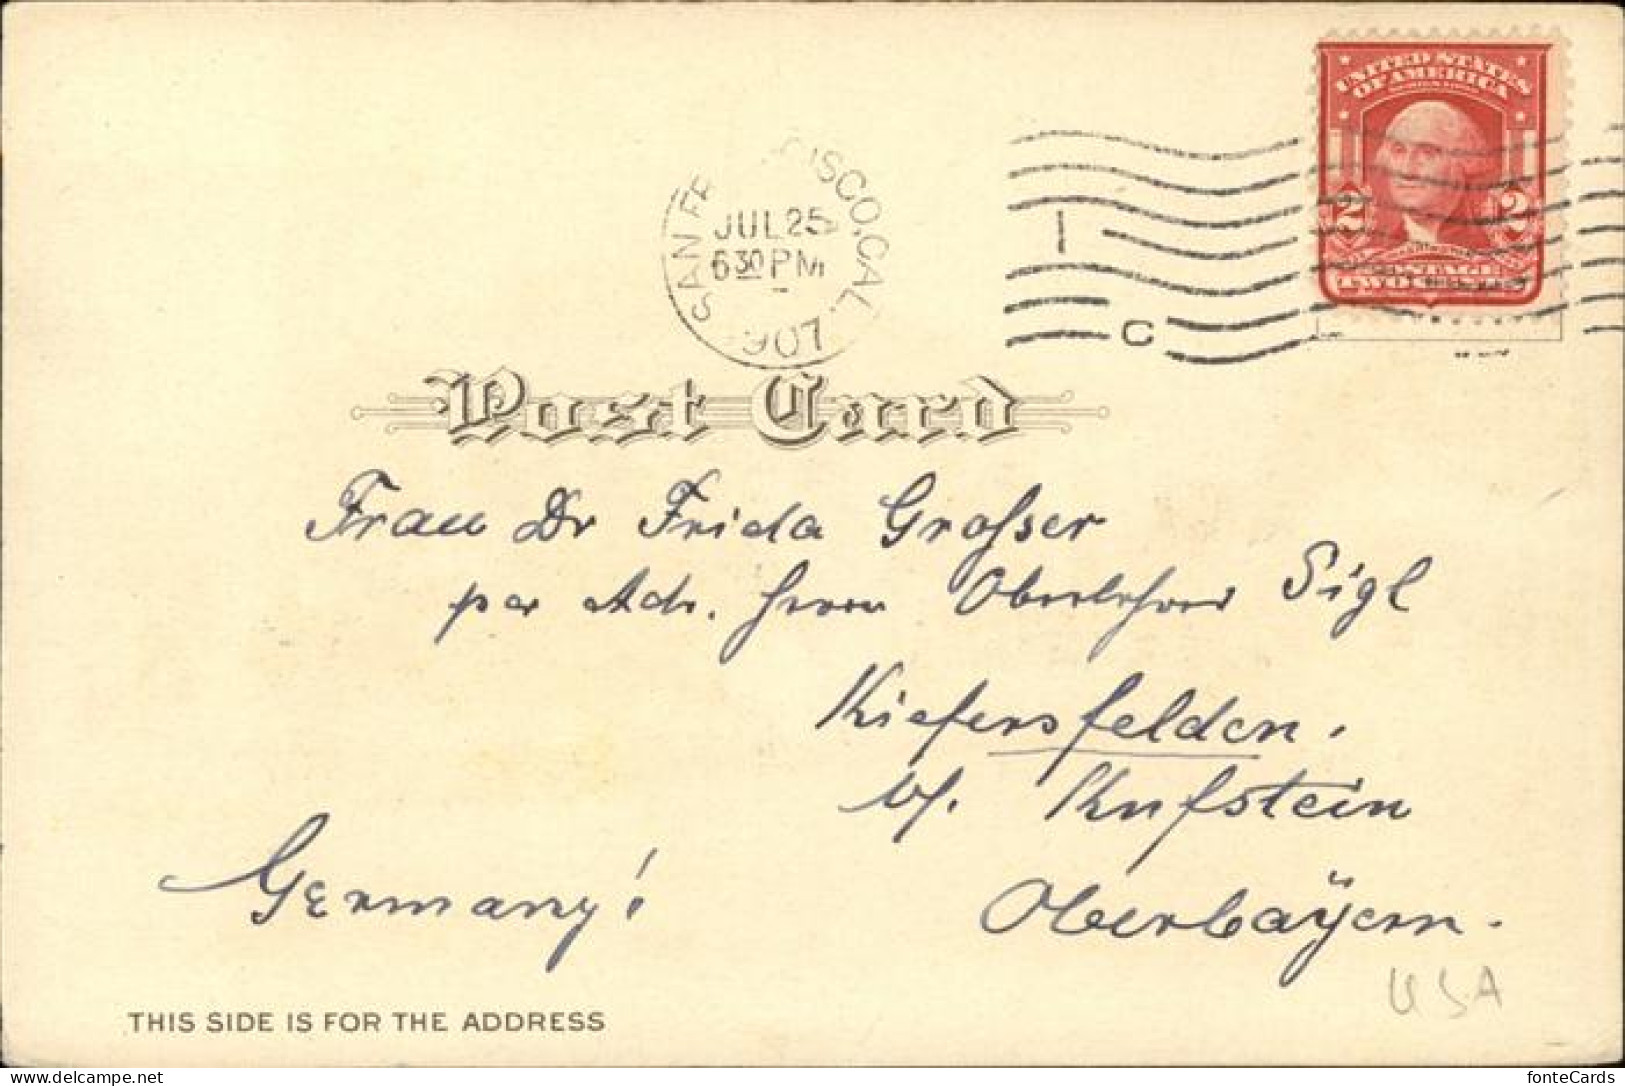 UNITED STATES
OF AMERICA
2 2
SAN FR CISCO, CAL.
JUL 25
6 30 PM
1907
1
C
Post Card
Frau Dr Frida Grosser
per Adr. Herrn Oberlehrer Sigl
Kiefersfelden.
b/. Kufstein
Germany! Oberbayern.
USA
THIS SIDE IS FOR THE ADDRESS
delcampe.net
fonteCards